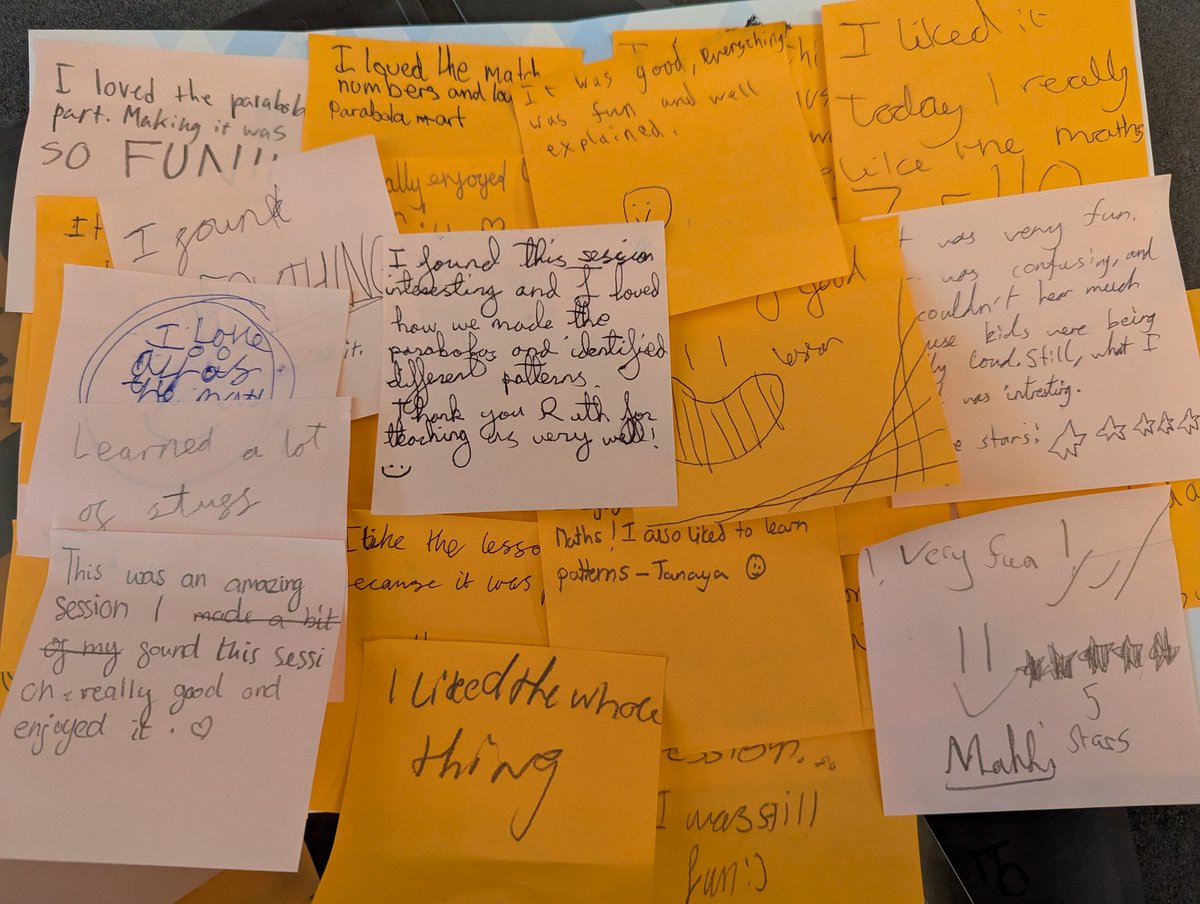 I loved the parabola
part. Making it was
SO FUN!!!
I loved the math
numbers and
Parabola art
ally enjoyed
It was good, everything
was fun and well
explained.
I liked it
today I really
like the maths
I found
I found this session
interesting and I loved
how we made the
parabolas and identified
different patterns.
Thank you Ruth for
teaching us very well!
good
lesson
was very fun.
was confusing, and
couldn't hear much
use kids were being
ly loud. Still, what I
was intresting.
e stars!
I Love
the math
it.
Learned a lot
of stuffs
This was an amazing
session I made a bit
of my found this sessi
on really good and
enjoyed it.
I like the lesso
ecause it was
Maths! I also liked to learn
patterns - Tanaya
! Very fun !
5
stars
Mahhi
I Liked the whole
thing
ession.
I was still
fun :)